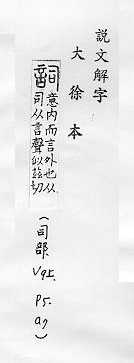 說文解字
大徐本
意內而言外也从
司从言聲似茲切
(司部. V9上. P5. a7)